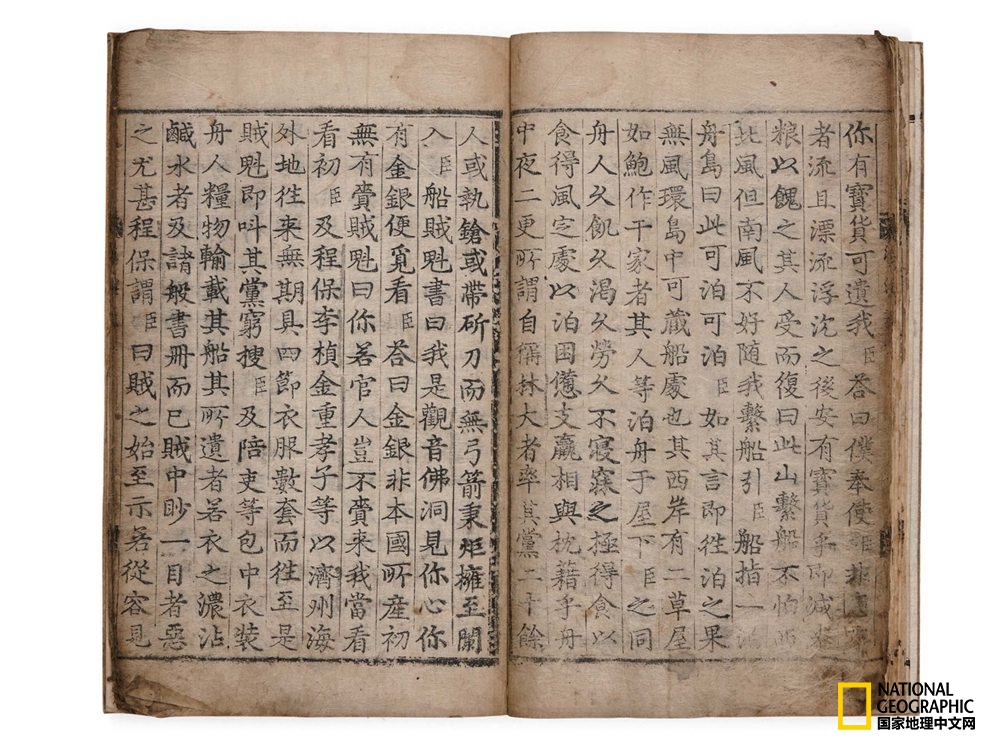 你有寶貨可遺我臣荅曰僕奉使
者流且漂流浮沈之後安有寶貨乎即減
粮以餽之其人受而復曰此山繫船不怕西
北風但南風不好随我繫船引臣船指一
舟島曰此可泊可泊臣如其言即徃泊之果
無風環島中可藏船處也其西岸有二草屋
如鮑作干家者其人等泊舟于屋下臣之同
舟人久飢久渴久勞久不寢寐之極得食以
食得風定處以泊困憊支羸相與枕藉乎舟
中夜二更所謂自稱林大者率其黨二十餘
人或執鎗或帶斫刀而無弓箭秉炬擁至闌
入臣船賊魁書曰我是觀音佛洞見你心你
有金銀便覓看臣荅曰金銀非本國所産初
無有賫賊魁曰你若官人豈不賫來我當看
看初臣及程保李楨金重孝子等以濟州海
外地徃來無期具四節衣服數套而徃至是
賊魁即叫其黨窮搜臣及陪吏等包中衣裝
舟人糧物輸載其船其所遺者若衣之濃沾
鹹水者及諸般書册而已賊中眇一目者惡
之尤甚程保謂臣曰賊之始至示若從容見
NATIONAL
GEOGRAPHIC
国家地理中文网